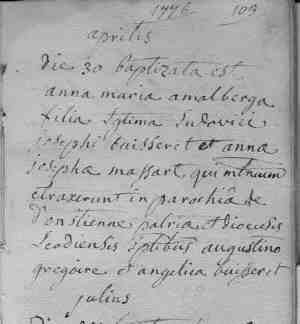 1776 109
aprilis
Die 30 baptizata est
anna maria amalberga
filia Lgtima Ludovici
josephi buisseret et anna
josepha massart, qui mtrium
ctraxerunt in parochiâ de
d'onstienne patria et diocesis
Leodiensis Sptibus augustino
gregoire et angelica buisseret
julius